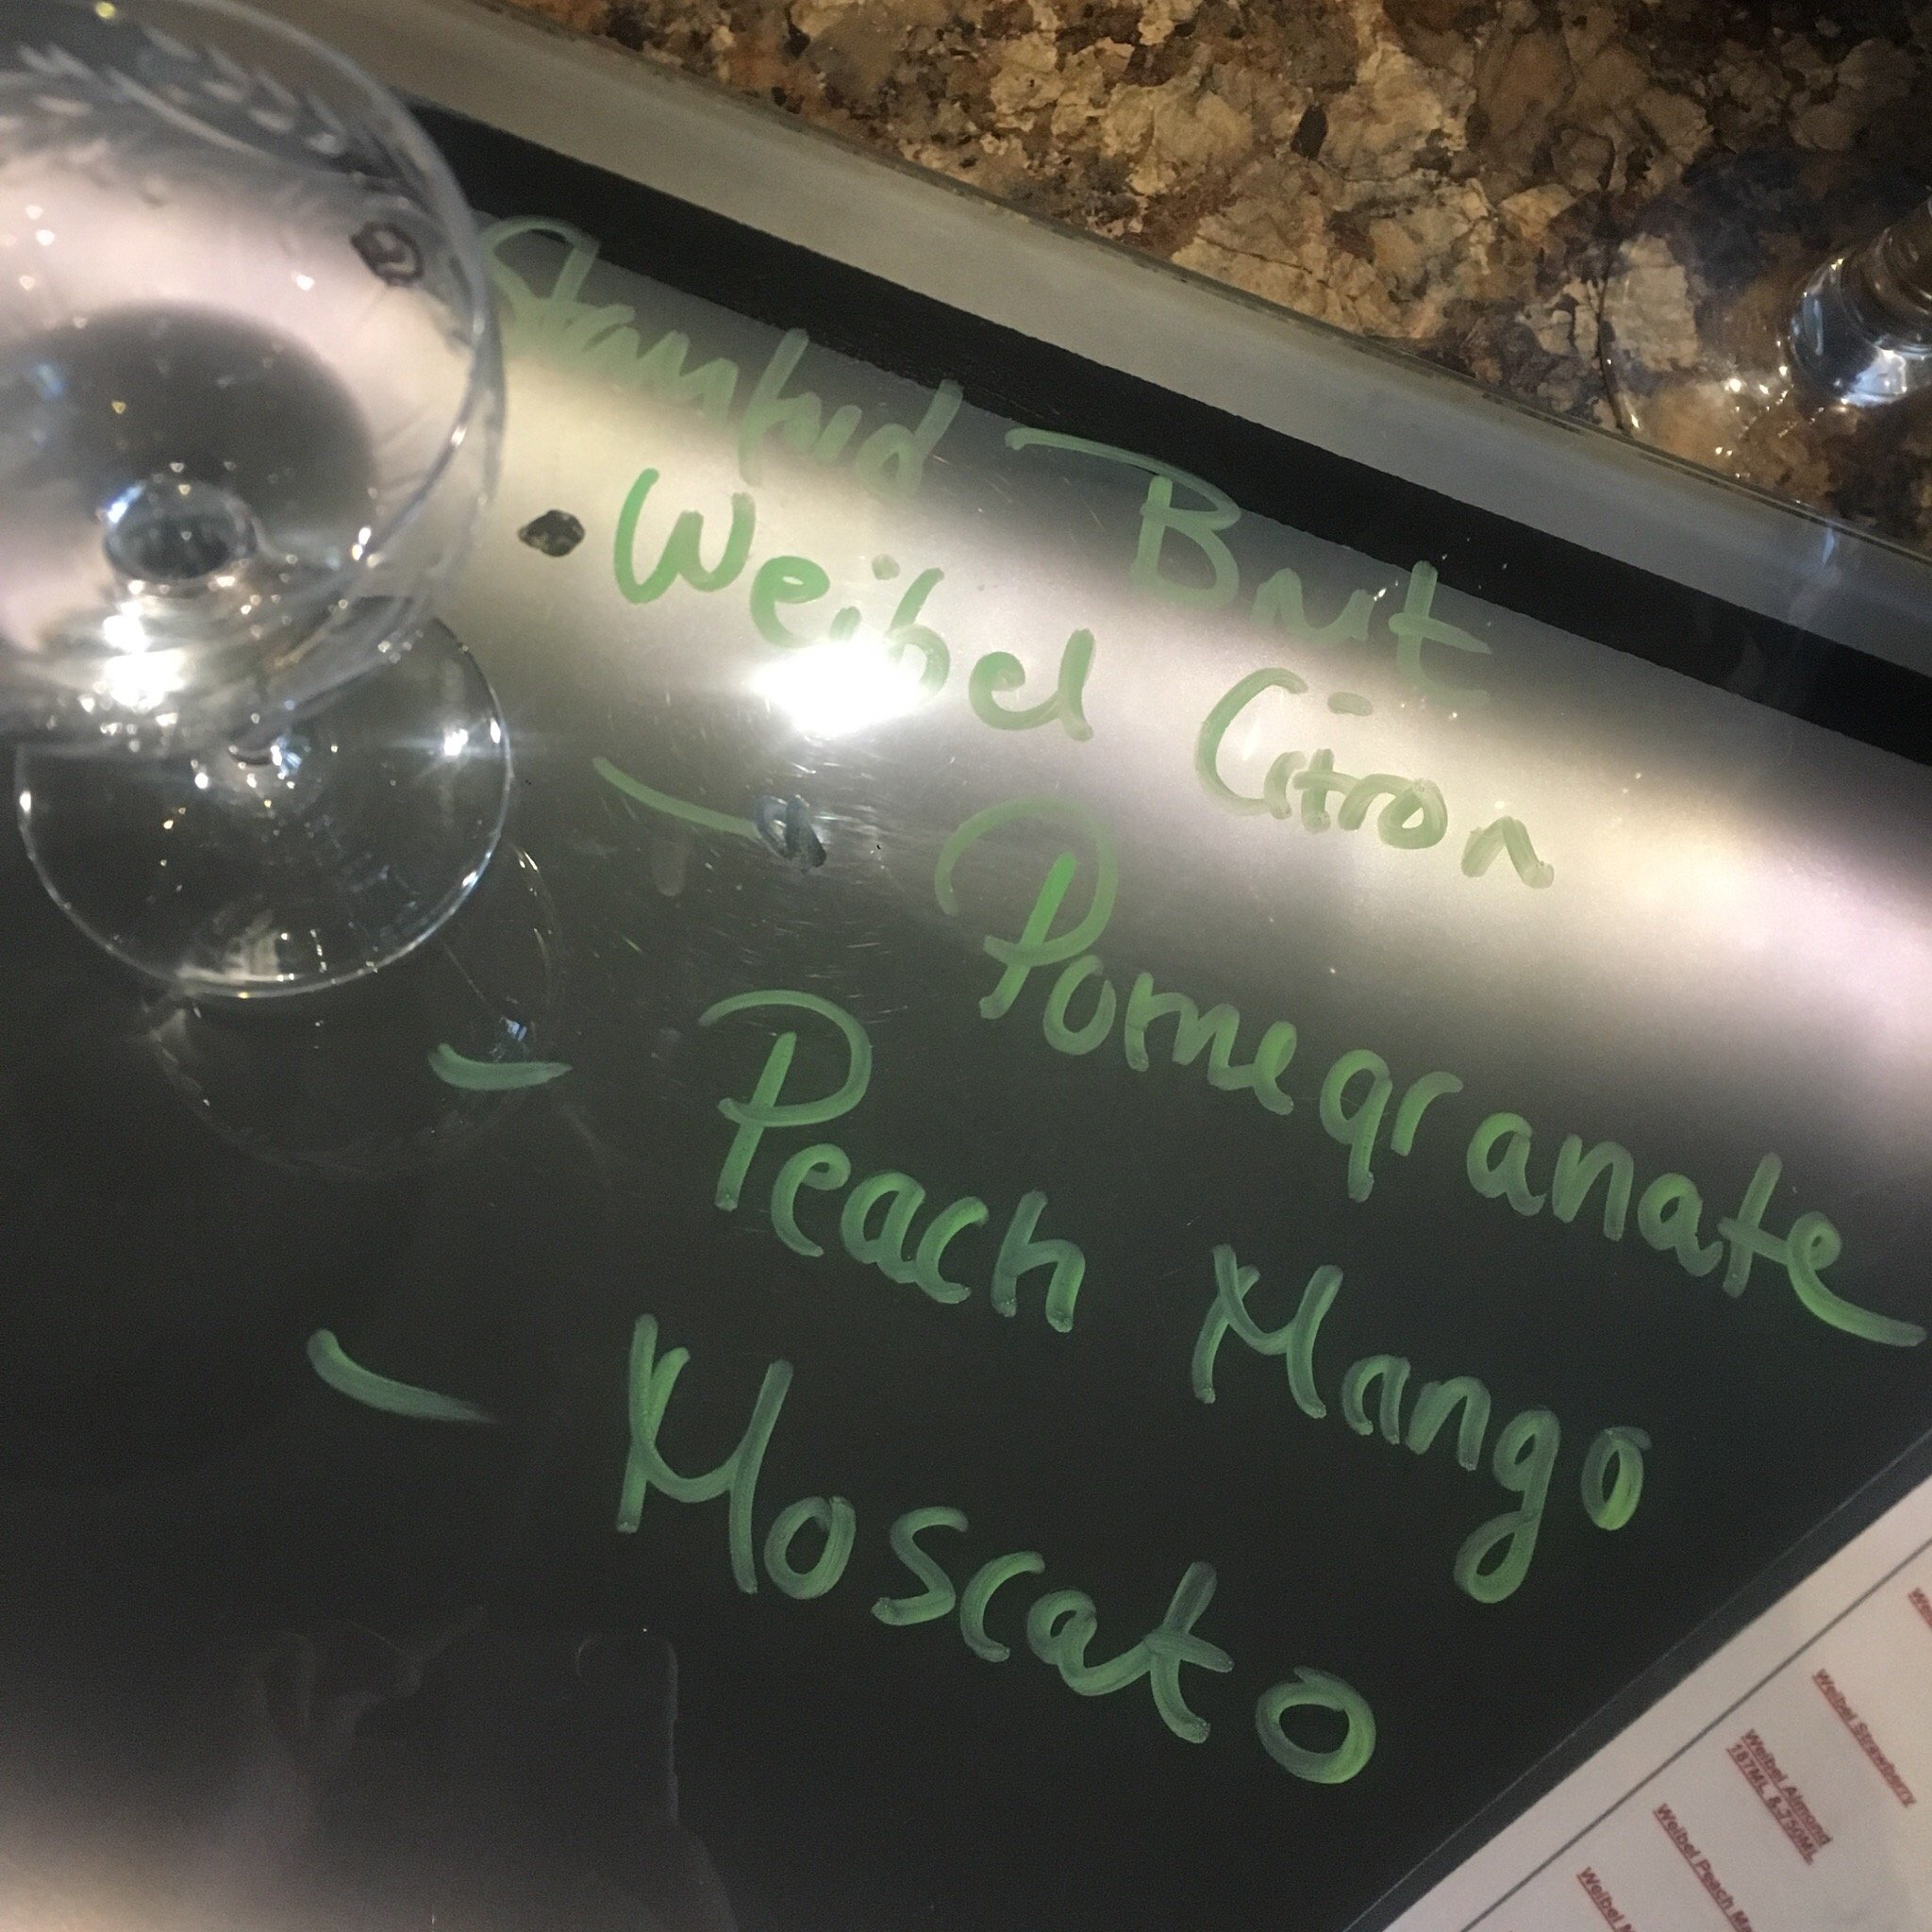 Stanford Brut
Weibel Citron
- Pomegranate
- Peach Mango
- Moscato
Weibel Strawberry
Weibel Almond
187ML & 750ML
Weibel Peach Ma
Weibel